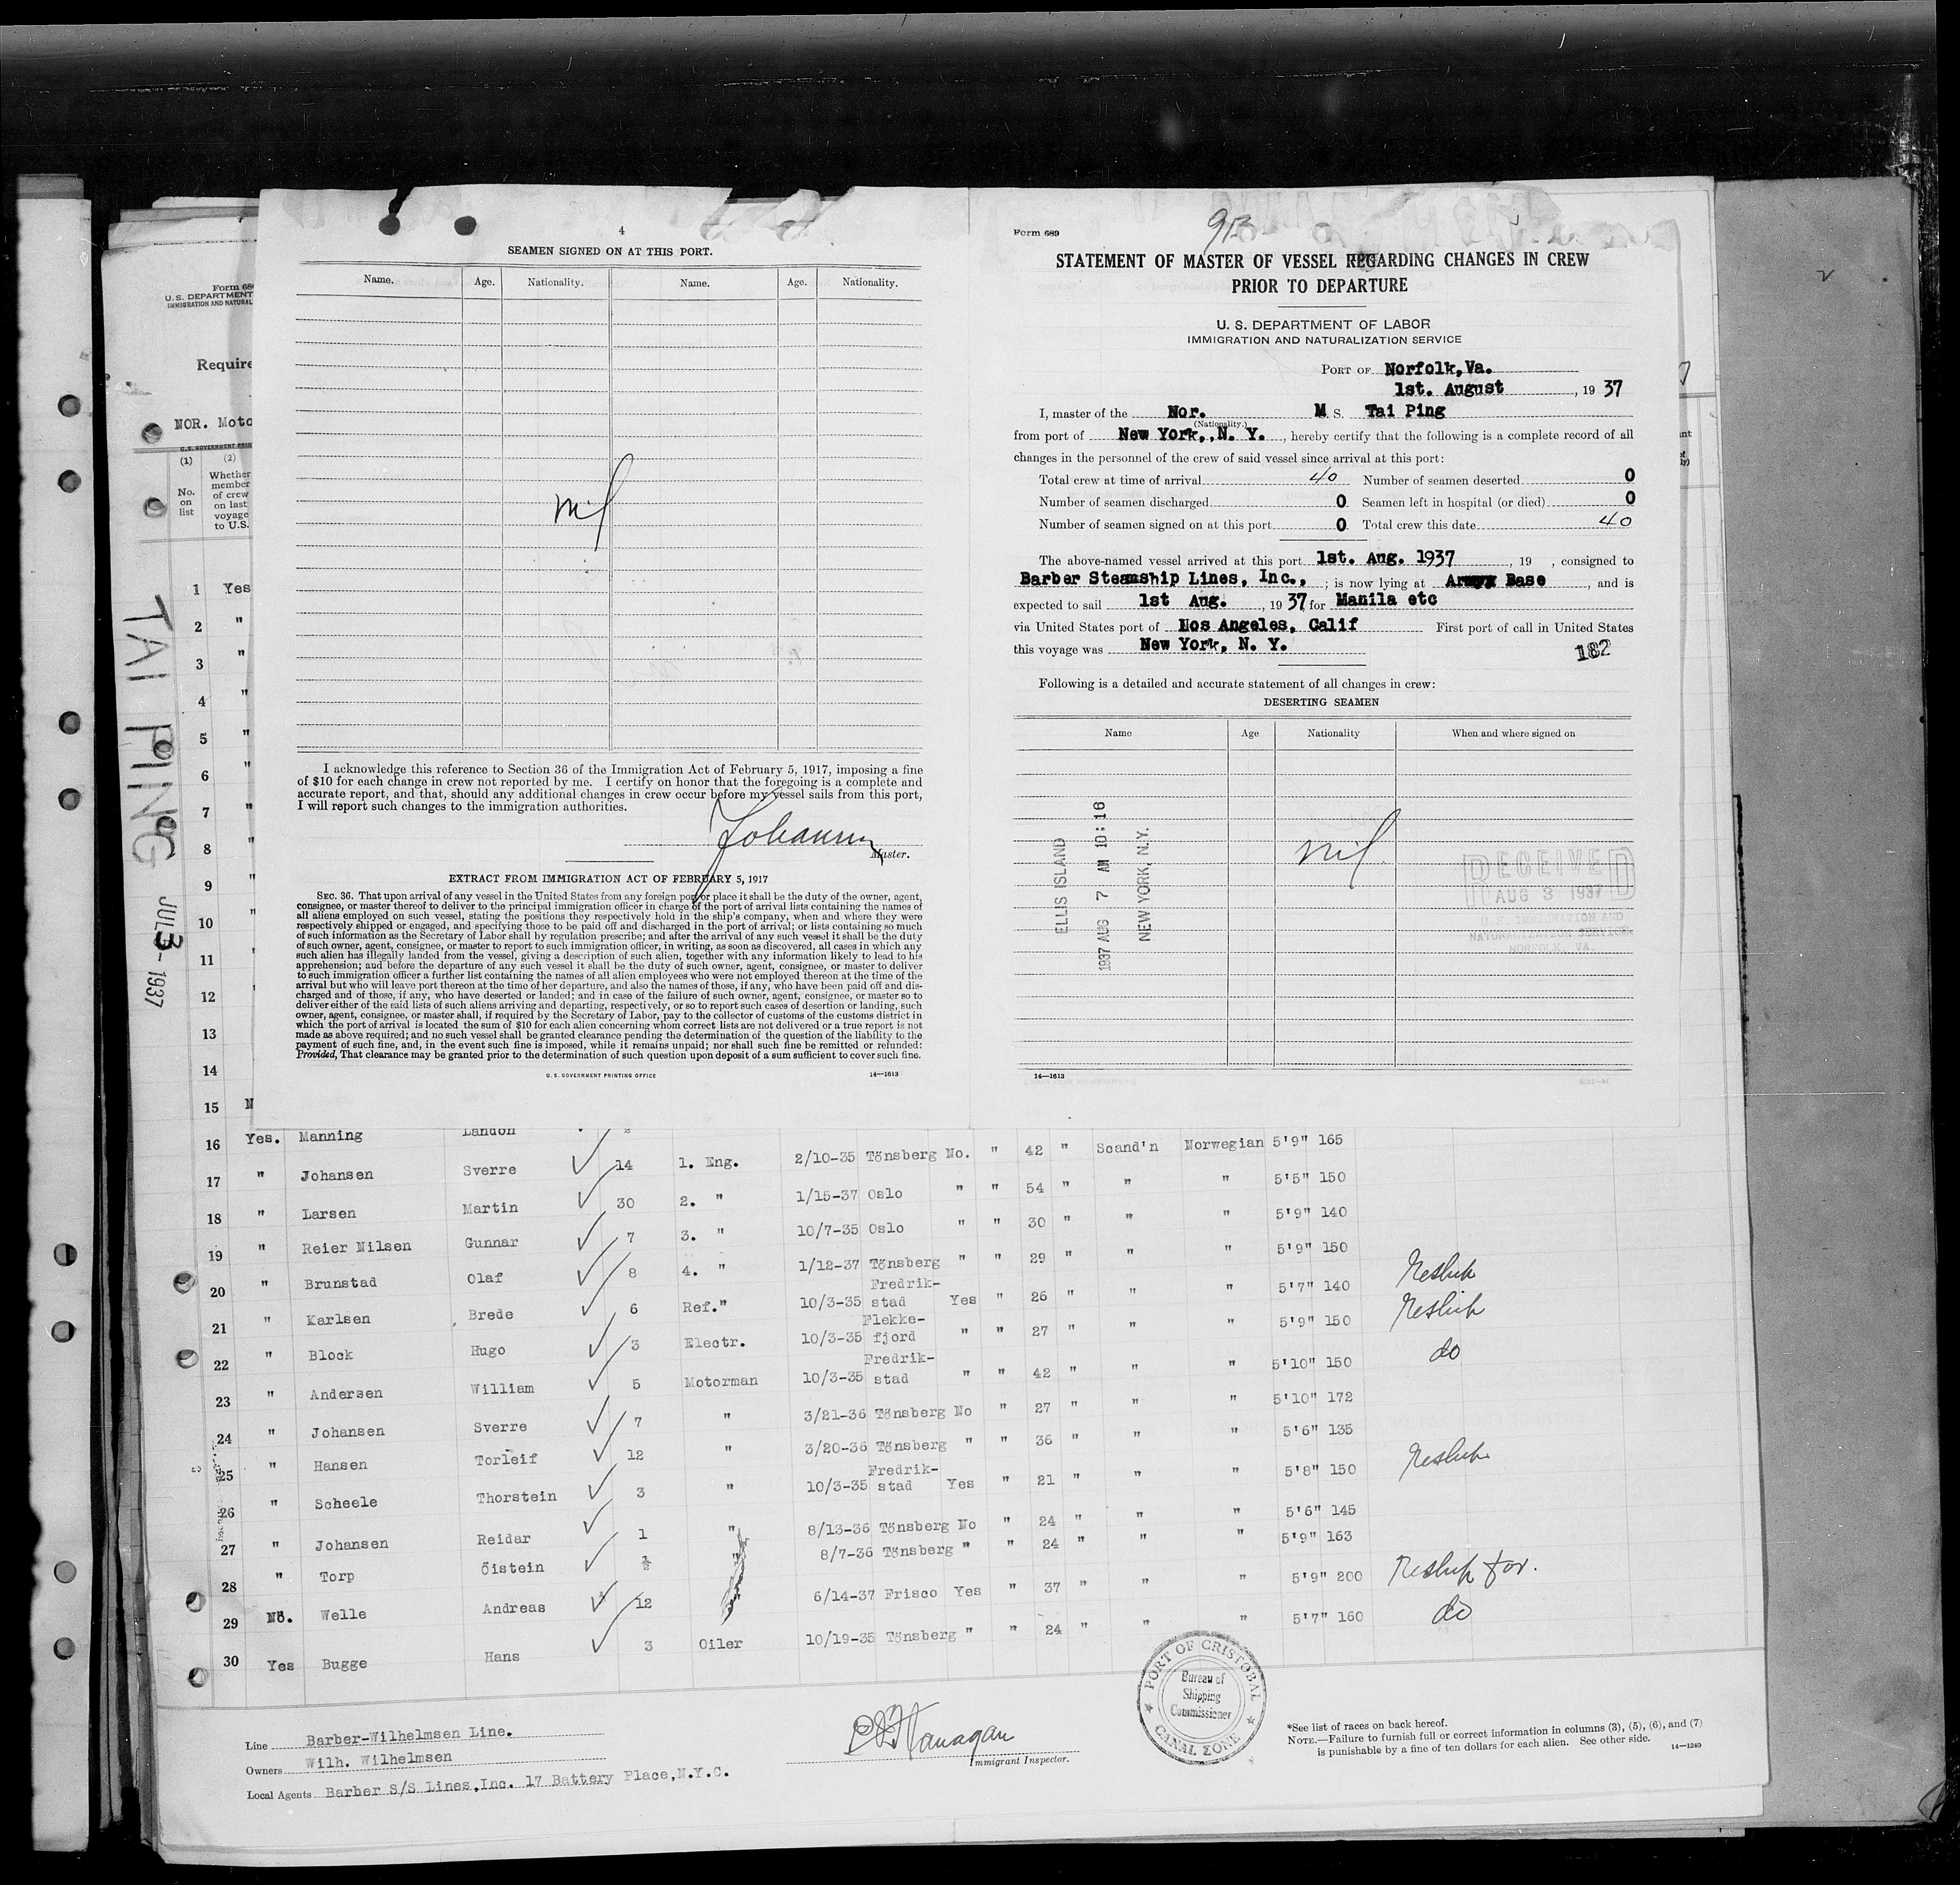 4
SEAMEN SIGNED ON AT THIS PORT.
Name. Age. Nationality. Name. Age. Nationality.
nil
I acknowledge this reference to Section 36 of the Immigration Act of February 5, 1917, imposing a fine
of $10 for each change in crew not reported by me. I certify on honor that the foregoing is a complete and
accurate report, and that, should any additional changes in crew occur before my vessel sails from this port,
I will report such changes to the immigration authorities.
Master.
EXTRACT FROM IMMIGRATION ACT OF FEBRUARY 5, 1917
SEC. 36. That upon arrival of any vessel in the United States from any foreign port or place it shall be the duty of the owner, agent,
consignee, or master thereof to deliver to the principal immigration officer in charge of the port of arrival lists containing the names of
all aliens employed on such vessel, stating the positions they respectively hold in the ship's company, when and where they were
respectively shipped or engaged, and specifying those to be paid off and discharged in the port of arrival; or lists containing so much
of such information as the Secretary of Labor shall by regulation prescribe; and after the arrival of any such vessel it shall be the duty
of such owner, agent, consignee, or master to report to such immigration officer, in writing, as soon as discovered, all cases in which any
such alien has illegally landed from the vessel, giving a description of such alien, together with any information likely to lead to his
apprehension; and before the departure of any such vessel it shall be the duty of such owner, agent, consignee, or master to deliver
to such immigration officer a further list containing the names of all alien employees who were not employed thereon at the time of the
arrival but who will leave port thereon at the time of her departure, and also the names of those, if any, who have been paid off and dis-
charged and of those, if any, who have deserted or landed; and in case of the failure of such owner, agent, consignee, or master so to
deliver either of the said lists of such aliens arriving and departing, respectively, or so to report such cases of desertion or landing, such
owner, agent, consignee, or master shall, if required by the Secretary of Labor, pay to the collector of customs of the customs district in
which the port of arrival is located the sum of $10 for each alien concerning whom correct lists are not delivered or a true report is not
made as above required; and no such vessel shall be granted clearance pending the determination of the question of the liability to the
payment of such fine, and, in the event such fine is imposed, while it remains unpaid; nor shall such fine be remitted or refunded:
Provided, That clearance may be granted prior to the determination of such question upon deposit of a sum sufficient to cover such fine.
U. S. GOVERNMENT PRINTING OFFICE 14—1613
Form 689
STATEMENT OF MASTER OF VESSEL REGARDING CHANGES IN CREW
PRIOR TO DEPARTURE
U. S. DEPARTMENT OF LABOR
IMMIGRATION AND NATURALIZATION SERVICE
PORT OF Norfolk,Va.
1st. August , 19 37
I, master of the Nor. M S. Tai Ping
(Nationality.)
from port of New York, N. Y. , hereby certify that the following is a complete record of all
changes in the personnel of the crew of said vessel since arrival at this port:
Total crew at time of arrival 40 Number of seamen deserted 0
Number of seamen discharged 0 Seamen left in hospital (or died) 0
Number of seamen signed on at this port 0 Total crew this date 40
The above-named vessel arrived at this port 1st. Aug. 1937 , 19 , consigned to
Barber Steamship Lines, Inc., ; is now lying at Army Base , and is
expected to sail 1st Aug. , 19 37 for Manila etc
via United States port of Los Angeles, Calif First port of call in United States
this voyage was New York, N. Y.
182
Following is a detailed and accurate statement of all changes in crew:
DESERTING SEAMEN
Name Age Nationality When and where signed on
nil
ELLIS ISLAND
1937 AUG 7 AM 10:16
NEW YORK, N.Y.
RECEIVED
AUG 3 1937
U. S. IMMIGRATION AND
NATURALIZATION SERVICE
NORFOLK, VA.
14—1613
Form 68
U. S. DEPARTMENT
IMMIGRATION AND NATURAL
Require
NOR. Moto
(1) (2)
No. on list
Whether member of crew on last voyage to U.S.
TAI PING JUL 3 - 1937
1 Yes
2 "
3 "
4 "
5 "
6 "
7 "
8 "
9 "
10 "
11 "
12 "
13 "
14
15 N
16 Yes. Manning Landon
17 " Johansen Sverre 14 1. Eng. 2/10-35 Tönsberg No. " 42 " Scand'n Norwegian 5'9" 165
18 " Larsen Martin 30 2. " 1/15-37 Oslo " " 54 " " " 5'5" 150
19 " Reier Nilsen Gunnar 7 3. " 10/7-35 Oslo " " 30 " " " 5'9" 140
20 " Brunstad Olaf 8 4. " 1/12-37 Tönsberg " " 29 " " " 5'9" 150
21 " Karlsen Brede 6 Ref." 10/3-35 Fredrik-stad Yes " 26 " " " 5'7" 140 Reship
22 " Block Hugo 3 Electr. 10/3-35 Flekke-fjord " " 27 " " " 5'9" 150 Reship
23 " Andersen William 5 Motorman 10/3-35 Fredrik-stad " " 42 " " " 5'10" 150 do
24 " Johansen Sverre 7 " 3/21-36 Tönsberg No " 27 " " " 5'10" 172
25 " Hansen Torleif 12 " 3/20-36 Tönsberg " " 36 " " " 5'6" 135
26 " Scheele Thorstein 3 " 10/3-35 Fredrik-stad Yes " 21 " " " 5'8" 150 Reship
27 " Johansen Reidar 1 " 8/13-36 Tönsberg No " 24 " " " 5'6" 145
28 " Torp Öistein ½ 8/7-36 Tönsberg " " 24 " " " 5'9" 163
29 No. Welle Andreas 12 6/14-37 Frisco Yes " 37 " " " 5'9" 200 Reship for.
30 Yes Bugge Hans 3 Oiler 10/19-35 Tönsberg " " 24 " " " 5'7" 160 do
PORT OF CRISTOBAL
Bureau of
Shipping
Commissioner
CANAL ZONE
Line Barber-Wilhelmsen Line.
Owners Wilh. Wilhelmsen
Local Agents Barber S/S Lines,Inc. 17 Battery Place,N.Y.C.
Immigrant Inspector.
*See list of races on back hereof.
NOTE.—Failure to furnish full or correct information in columns (3), (5), (6), and (7)
is punishable by a fine of ten dollars for each alien. See other side. 14—1240